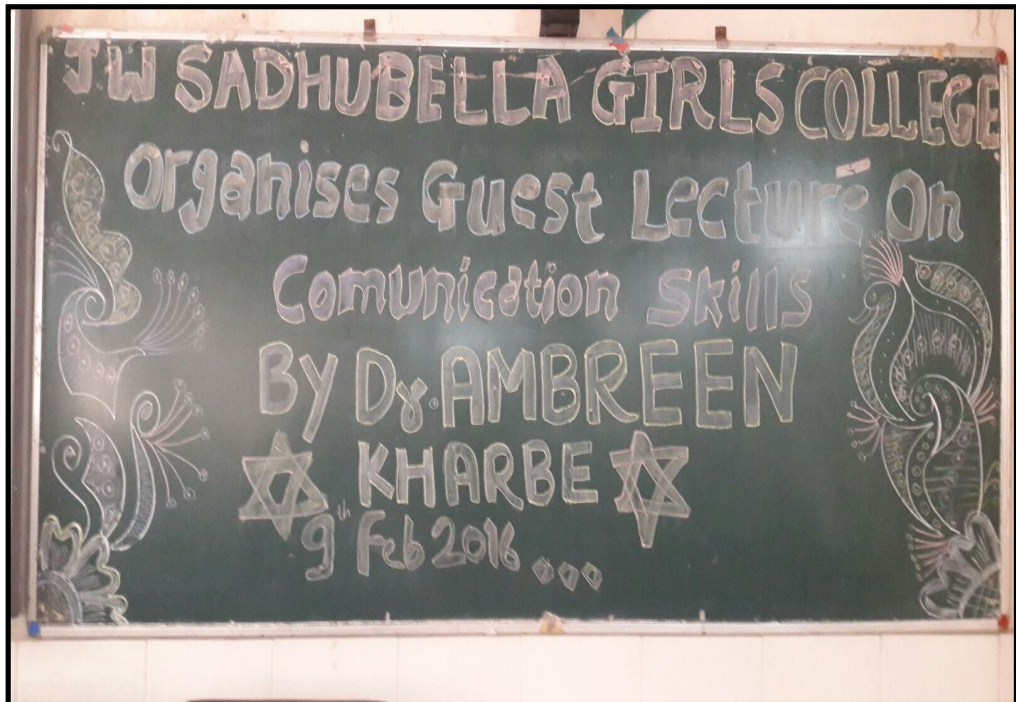 JW SADHUBELLA GIRLS COLLEGE
Organises Guest Lecture On
Comunication Skills
BY Dr. AMBREEN
KHARBE
9th Feb 2016...